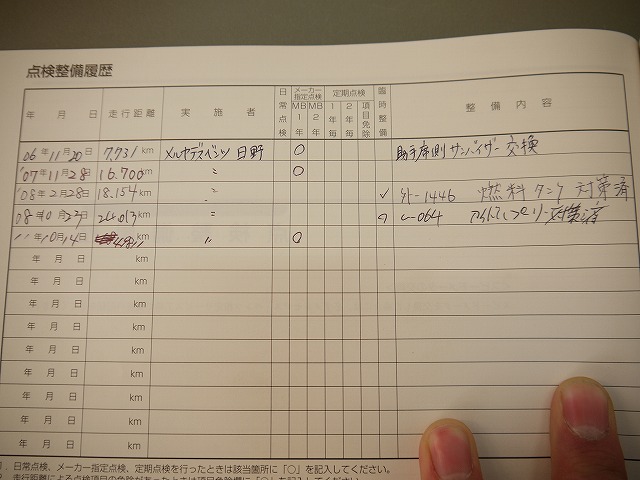 点検整備履歴
年 月 日 走行距離 実施者 日常点検 メーカー指定点検 MB1年 MB2年 定期点検 1年毎 2年毎 項目免除 臨時整備 整備内容
06年11月20日 7,731km メルセデスベンツ 日野 ○ 助手席側サンバイザー交換
'07年11月28日 16.700km 〃 ○
'08年2月28日 18.154km 〃 ✓ 外-1446 燃料タンク対策済
08年10月23日 km 〃 対策済
11年10月14日 km 〃 ○
年 月 日 km
年 月 日 km
年 月 日 km
年 月 日 km
年 月 日 km
年 月 日 km
年 月 日 km
年 月 日 km
年 月 日 km
1.日常点検、メーカー指定点検、定期点検を行ったときは該当箇所に「○」を記入してください。
2.走行距離による点検項目の免除があったときは項目免除欄に「○」を記入してください。